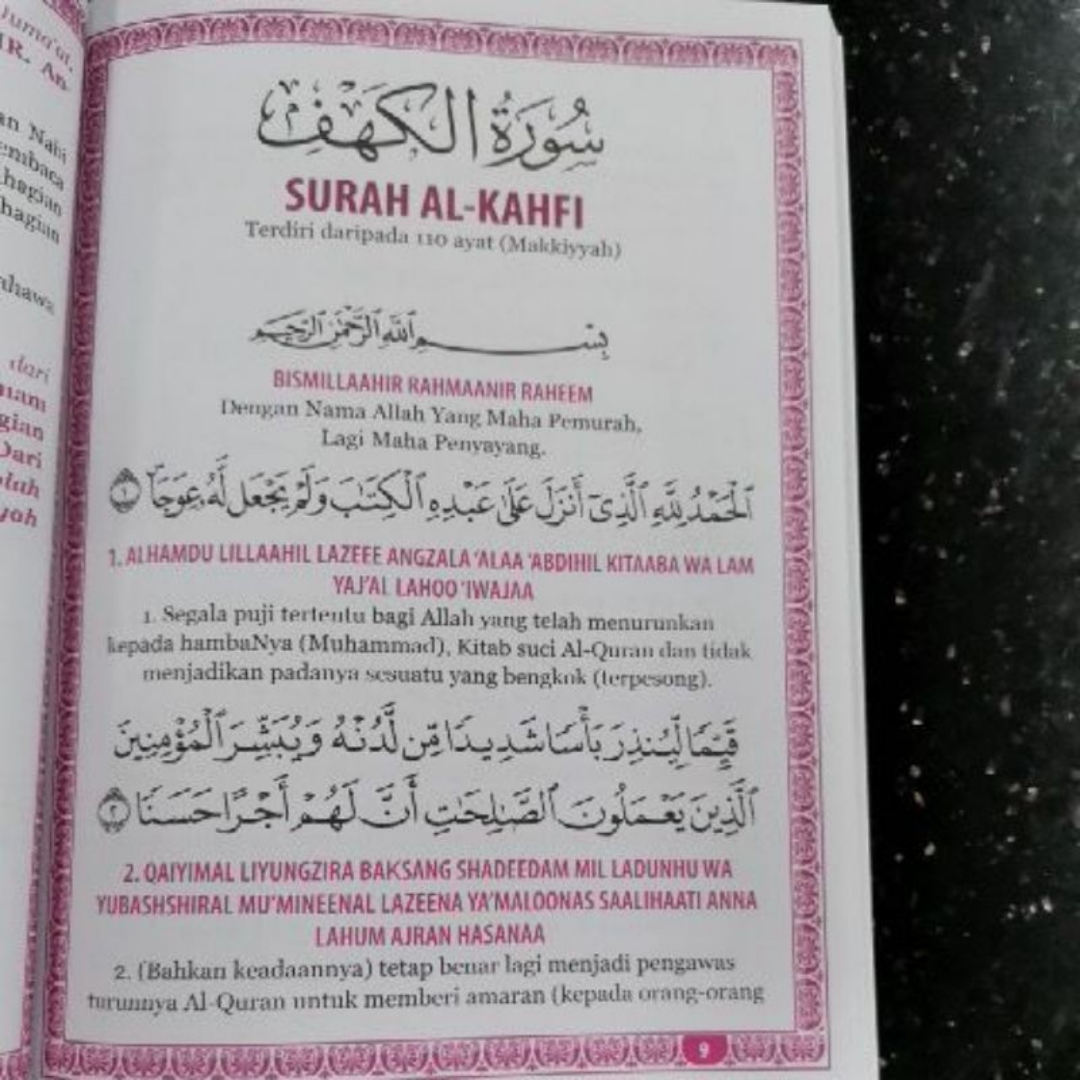 Juma'at,
R. An-
an Nabi
embaca
hagian
hagian
ahawa
dari
mam
gian
Dari
lah
yah
سُورَةُ الكَهْفِ
SURAH AL-KAHFI
Terdiri daripada 110 ayat (Makkiyyah)
بِسْمِ ٱللَّهِ ٱلرَّحْمَٰنِ ٱلرَّحِيمِ
BISMILLAAHIR RAHMAANIR RAHEEM
Dengan Nama Allah Yang Maha Pemurah,
Lagi Maha Penyayang.
ٱلْحَمْدُ لِلَّهِ ٱلَّذِىٓ أَنزَلَ عَلَىٰ عَبْدِهِ ٱلْكِتَٰبَ وَلَمْ يَجْعَل لَّهُۥ عِوَجَا ۜ ١
1. ALHAMDU LILLAAHIL LAZEEE ANGZALA 'ALAA 'ABDIHIL KITAABA WA LAM
YAJ'AL LAHOO 'IWAJAA
1. Segala puji tertentu bagi Allah yang telah menurunkan
kepada hambaNya (Muhammad), Kitab suci Al-Quran dan tidak
menjadikan padanya sesuatu yang bengkok (terpesong).
قَيِّمًا لِّيُنذِرَ بَأْسًا شَدِيدًا مِّن لَّدُنْهُ وَيُبَشِّرَ ٱلْمُؤْمِنِينَ
ٱلَّذِينَ يَعْمَلُونَ ٱلصَّٰلِحَٰتِ أَنَّ لَهُمْ أَجْرًا حَسَنًا ٢
2. QAIYIMAL LIYUNGZIRA BAKSANG SHADEEDAM MIL LADUNHU WA
YUBASHSHIRAL MU'MINEENAL LAZEENA YA'MALOONAS SAALIHAATI ANNA
LAHUM AJRAN HASANAA
2. (Bahkan keadaannya) tetap benar lagi menjadi pengawas
turunnya Al-Quran untuk memberi amaran (kepada orang-orang
9